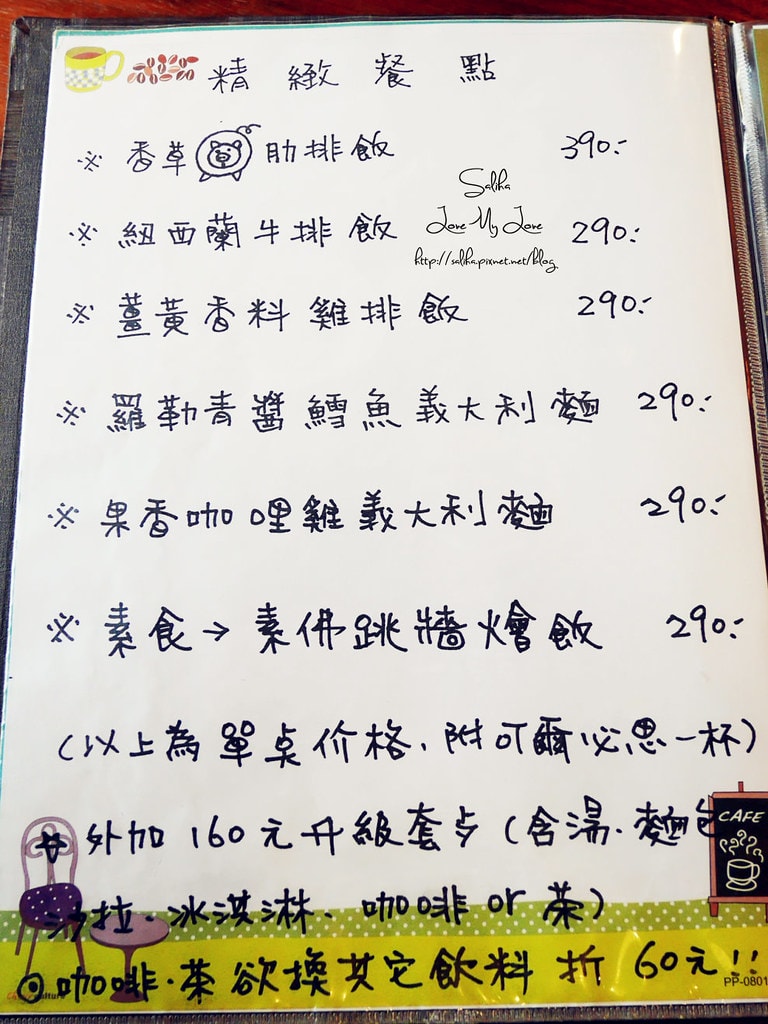 精緻餐點
※ 香草豬肋排飯 390.-
Saliha
Love My Love
※ 紐西蘭牛排飯 290.-
http://saliha.pixnet.net/blog
※ 薑黃香料雞排飯 290.-
※ 羅勒青醬鱈魚義大利麵 290.-
※ 果香咖哩雞義大利麵 290.-
※ 素食→素佛跳牆燴飯 290.-
(以上為單点价格、附可爾必思一杯)
外加160元升級套歺(含湯.麵包
CAFE
沙拉.冰淇淋、咖啡or茶)
⊙咖啡.茶欲換其它飲料折60元!!
PP-0801